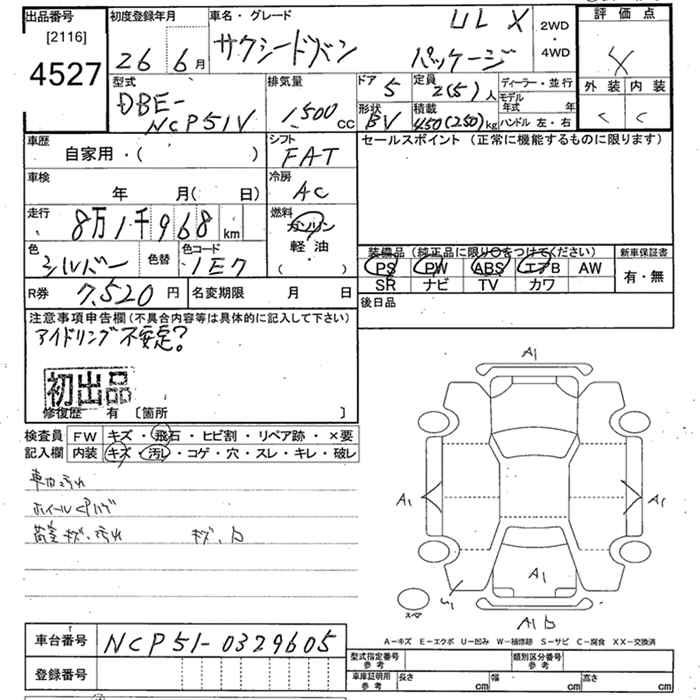 出品番号 初度登録年月 車名・グレード 評価点
[2116] 26 6月 サクシードバン UL X パッケージ 2WD ・ 4WD 4
4527
型式 排気量 ドア 定員 ディーラー・並行 外装 内装
DBE-NCP51V 1,500cc 5 2(5)人 モデル年式 年 C C
形状 BV 積載 450(250)kg ハンドル 左・右
車歴 シフト セールスポイント(正常に機能するものに限ります)
自家用・( ) FAT
車検 冷房
年 月( 日) AC
走行 燃料
8万1千968km ガソリン
軽油
・
( )
色 色替 色コード 装備品(純正品に限り○をつけてください) 新車保証書
シルバー 1E7 PS PW ABS エアB AW 有・無
SR ナビ TV カワ
R券 7,520円 名変期限 月 日 後日品
注意事項申告欄(不具合内容等は具体的に記入して下さい)
アイドリング不安定?
初出品
修復歴 有 〔箇所 〕
検査員 FW キズ・飛石・ヒビ割・リペア跡・×要
記入欄 内装 キズ・汚レ・コゲ・穴・スレ・キレ・破レ
荷室キズ、汚れ
A1
A1
A1
A1
U1
A1
スペア
A-キズ E-エクボ U-凹み W-補修跡 S-サビ C-腐食 XX-交換済
車台番号 NCP51-0329605
登録番号
型式指定番号 参考 類別区分番号 参考
車庫証明用 参考 長さ cm 幅 cm 高さ cm